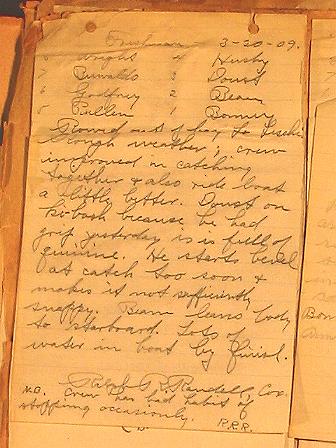 Freshman 3-20-09.
8 Wright 4 Husby
7 Ruwalds 3 Doust
6 Godfrey 2 Beam
5 Pullen 1 Bonner
Rowed out of bay to
rough weather; crew
improved in catching
together & also ride boat
a little better. Doust on
ki-bosh because he had
grip yesterday is is full of
quinine. He starts bevel
at catch too soon &
makes it not sufficiently
snappy. Beam leans body
to starboard. Lots of
water in boat by finish.
Ralph R. Randell, Cox.
N.B. Crew has bad habit of
stopping occasionly. R.R.R.